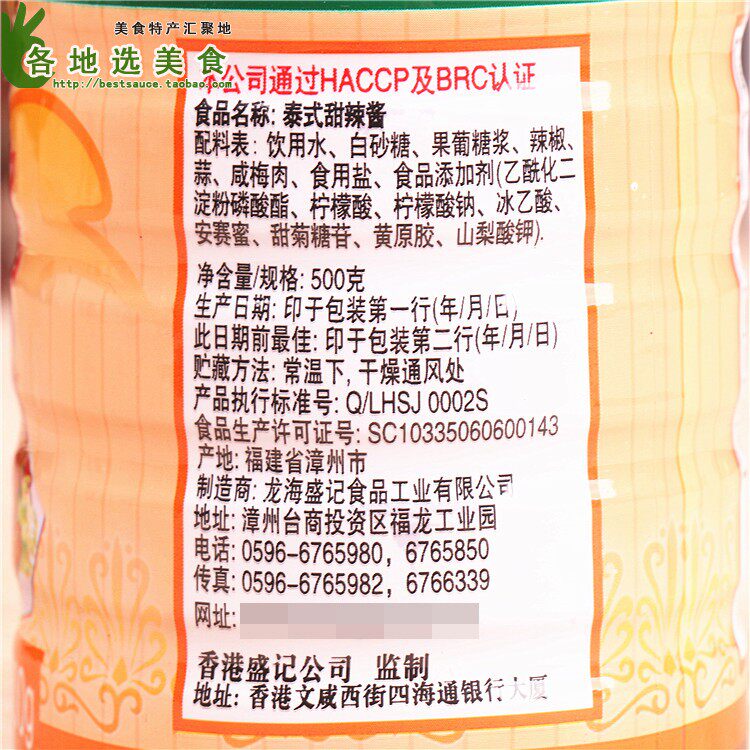 美食特产汇聚地
各地选美食
http://bestsauce.taobao.com
公司通过HACCP及BRC认证
食品名称: 泰式甜辣酱
配料表: 饮用水、白砂糖、果葡糖浆、辣椒、
蒜、咸梅肉、食用盐、食品添加剂(乙酰化二
淀粉磷酸酯、柠檬酸、柠檬酸钠、冰乙酸、
安赛蜜、甜菊糖苷、黄原胶、山梨酸钾).
净含量/规格: 500克
生产日期: 印于包装第一行(年/月/日)
此日期前最佳: 印于包装第二行(年/月/日)
贮藏方法: 常温下, 干燥通风处
产品执行标准号: Q/LHSJ 0002S
食品生产许可证号: SC10335060600143
产地: 福建省漳州市
制造商: 龙海盛记食品工业有限公司
地址: 漳州台商投资区福龙工业园
电话: 0596-6765980, 6765850
传真: 0596-6765982, 6766339
网址:
香港盛记公司 监制
地址: 香港文咸西街四海通银行大厦